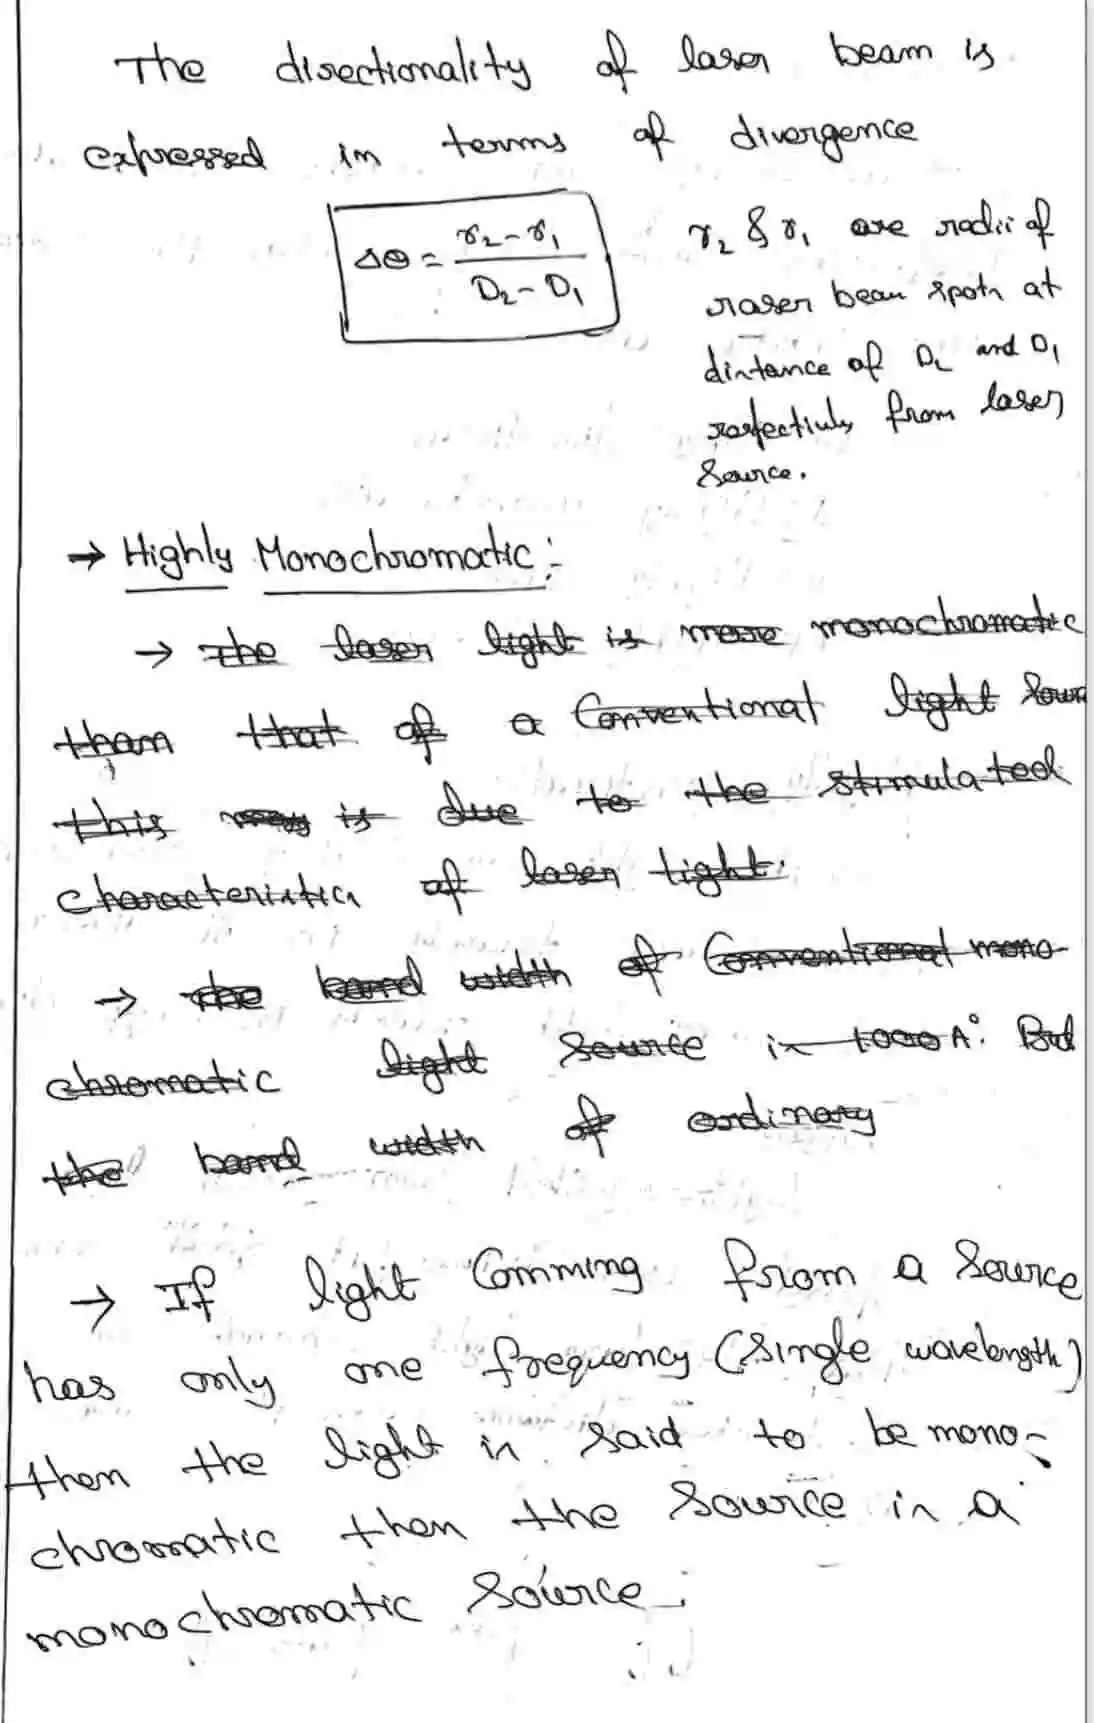 The directionality of laser beam is
expressed in terms of divergence
Δθ = r2 - r1 / D2 - D1
r2 & r1 are radii of
laser beam spots at
distance of D2 and D1
respectively from laser
source.
→ Highly Monochromatic :-
→ The laser light is more monochromatic
than that of a Conventional light sour
this is due to the stimulated
characteristics of laser light.
→ the band width of Conventional mono-
chromatic light source is 1000 A°. But
the band width of ordinary
→ If light Comming from a source
has only one frequency (single wavelength)
then the light is said to be mono-
chromatic then the source is a
monochromatic source.